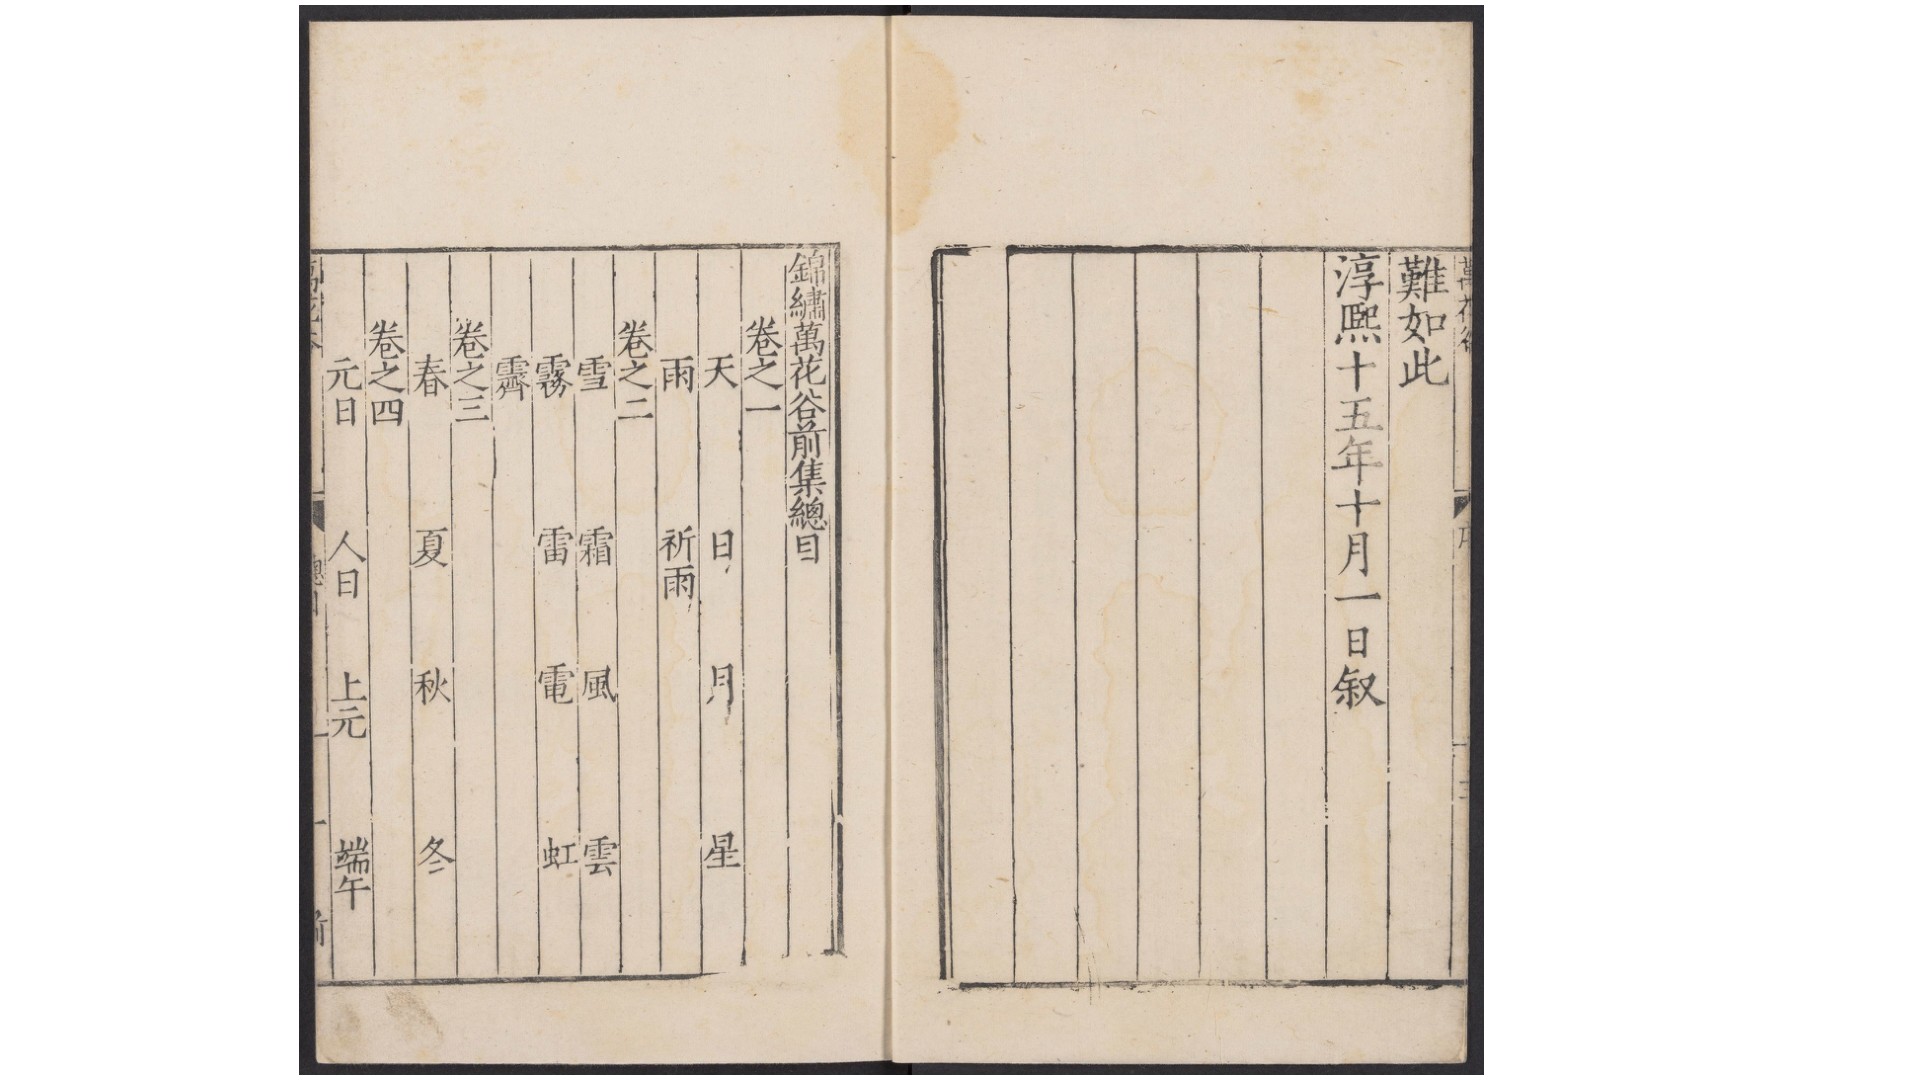 難如此
淳熈十五年十月一日叙
錦繡萬花谷前集總目
卷之一
天 日 月 星
雨 祈雨
卷之二
雪 霜 風 雲
霧 雷 電 虹
霽
卷之三
春 夏 秋 冬
卷之四
元日 人日 上元 端午